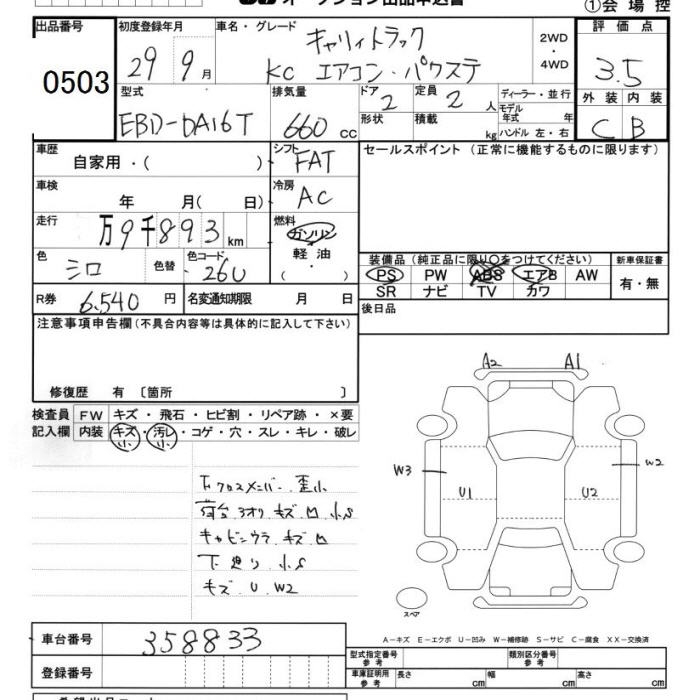 オークション出品申込書
①会場控
出品番号 0503
初度登録年月 29 9月
車名・グレード キャリイトラック
KC エアコン・パワステ
2WD・4WD
評価点 3.5
外装 内装
C B
型式 EBD-DA16T
排気量 660 cc
ドア 2
定員 2 人
形状 積載 kg
ディーラー・並行
モデル年式 年
ハンドル 左・右
車歴 自家用・( )
シフト FAT
セールスポイント(正常に機能するものに限ります)
車検 年 月( 日)
冷房 AC
走行 万9千893km
燃料 ガソリン
軽油・( )
色 シロ 色替
色コード 26U
装備品(純正品に限り○をつけてください)
新車保証書
PS PW ABS エアB AW
有・無
SR ナビ TV カワ
R券 6,540円
名変通知期限 月 日
後日品
注意事項申告欄(不具合内容等は具体的に記入して下さい)
修復歴 有 〔箇所 〕
検査員記入欄
FW キズ・飛石・ヒビ割・リペア跡・×要
内装 キズ・汚レ・コゲ・穴・スレ・キレ・破レ
小 小
A2 A1
W3 W2
U1 U2
下クロスメンバー 歪小
荷台 3オリ キズ凹 小S
キャビンウラ キズ凹
下廻り 小S
キズ U W2
スペア
A-キズ E-エクボ U-凹み W-補修跡 S-サビ C-腐食 XX-交換済
車台番号 358833
型式指定番号 参考
類別区分番号 参考
登録番号
車庫証明用 参考 長さ cm 幅 cm 高さ cm